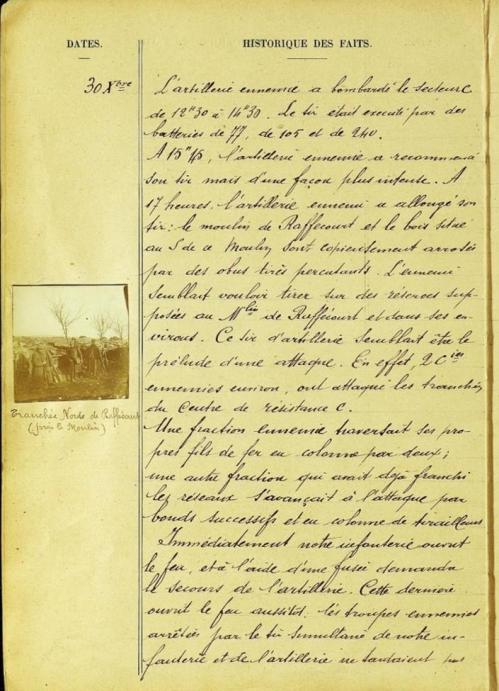 DATES.
HISTORIQUE DES FAITS.
30 Xbre
L'artillerie ennemie a bombardé le secteur C
de 12H30 à 14H30. Le tir était executé par des
batteries de 77, de 105 et de 240.
A 15H15, l'artillerie ennemie a recommencé
son tir mais d'une façon plus intense. A
17 heures, l'artillerie ennemi a allongé son
tir: le moulin de Raffecourt et le bois situé
au S de ce Moulin sont copieusement arrosés
par des obus tirés percutants. L'ennemi
semblait vouloir tirer sur des réserves sup-
posées au Mlin de Raffécourt et dans ses en-
virons. Ce tir d'artillerie semblait être le
prélude d'une attaque. En effet, 2 Cies
ennemies environ, ont attaqué les tranchées
du Centre de résistance C.
Une fraction ennemie traversait ses pro-
pres fils de fer en colonne par deux;
une autre fraction qui avait déjà franchi
les réseaux s'avançait à l'attaque par
bonds successifs et en colonne de tirailleurs
Immédiatement notre infanterie ouvrit
le feu, et à l'aide d'une fusée demanda
le secours de l'artillerie. Cette dernière
ouvrit le feu aussitôt. Les troupes ennemies
arrêtées par le tir simultané de notre in-
fanterie et de l'artillerie ne tardaient pas
Tranchée Nord de Raffécourt
(près le Moulin)